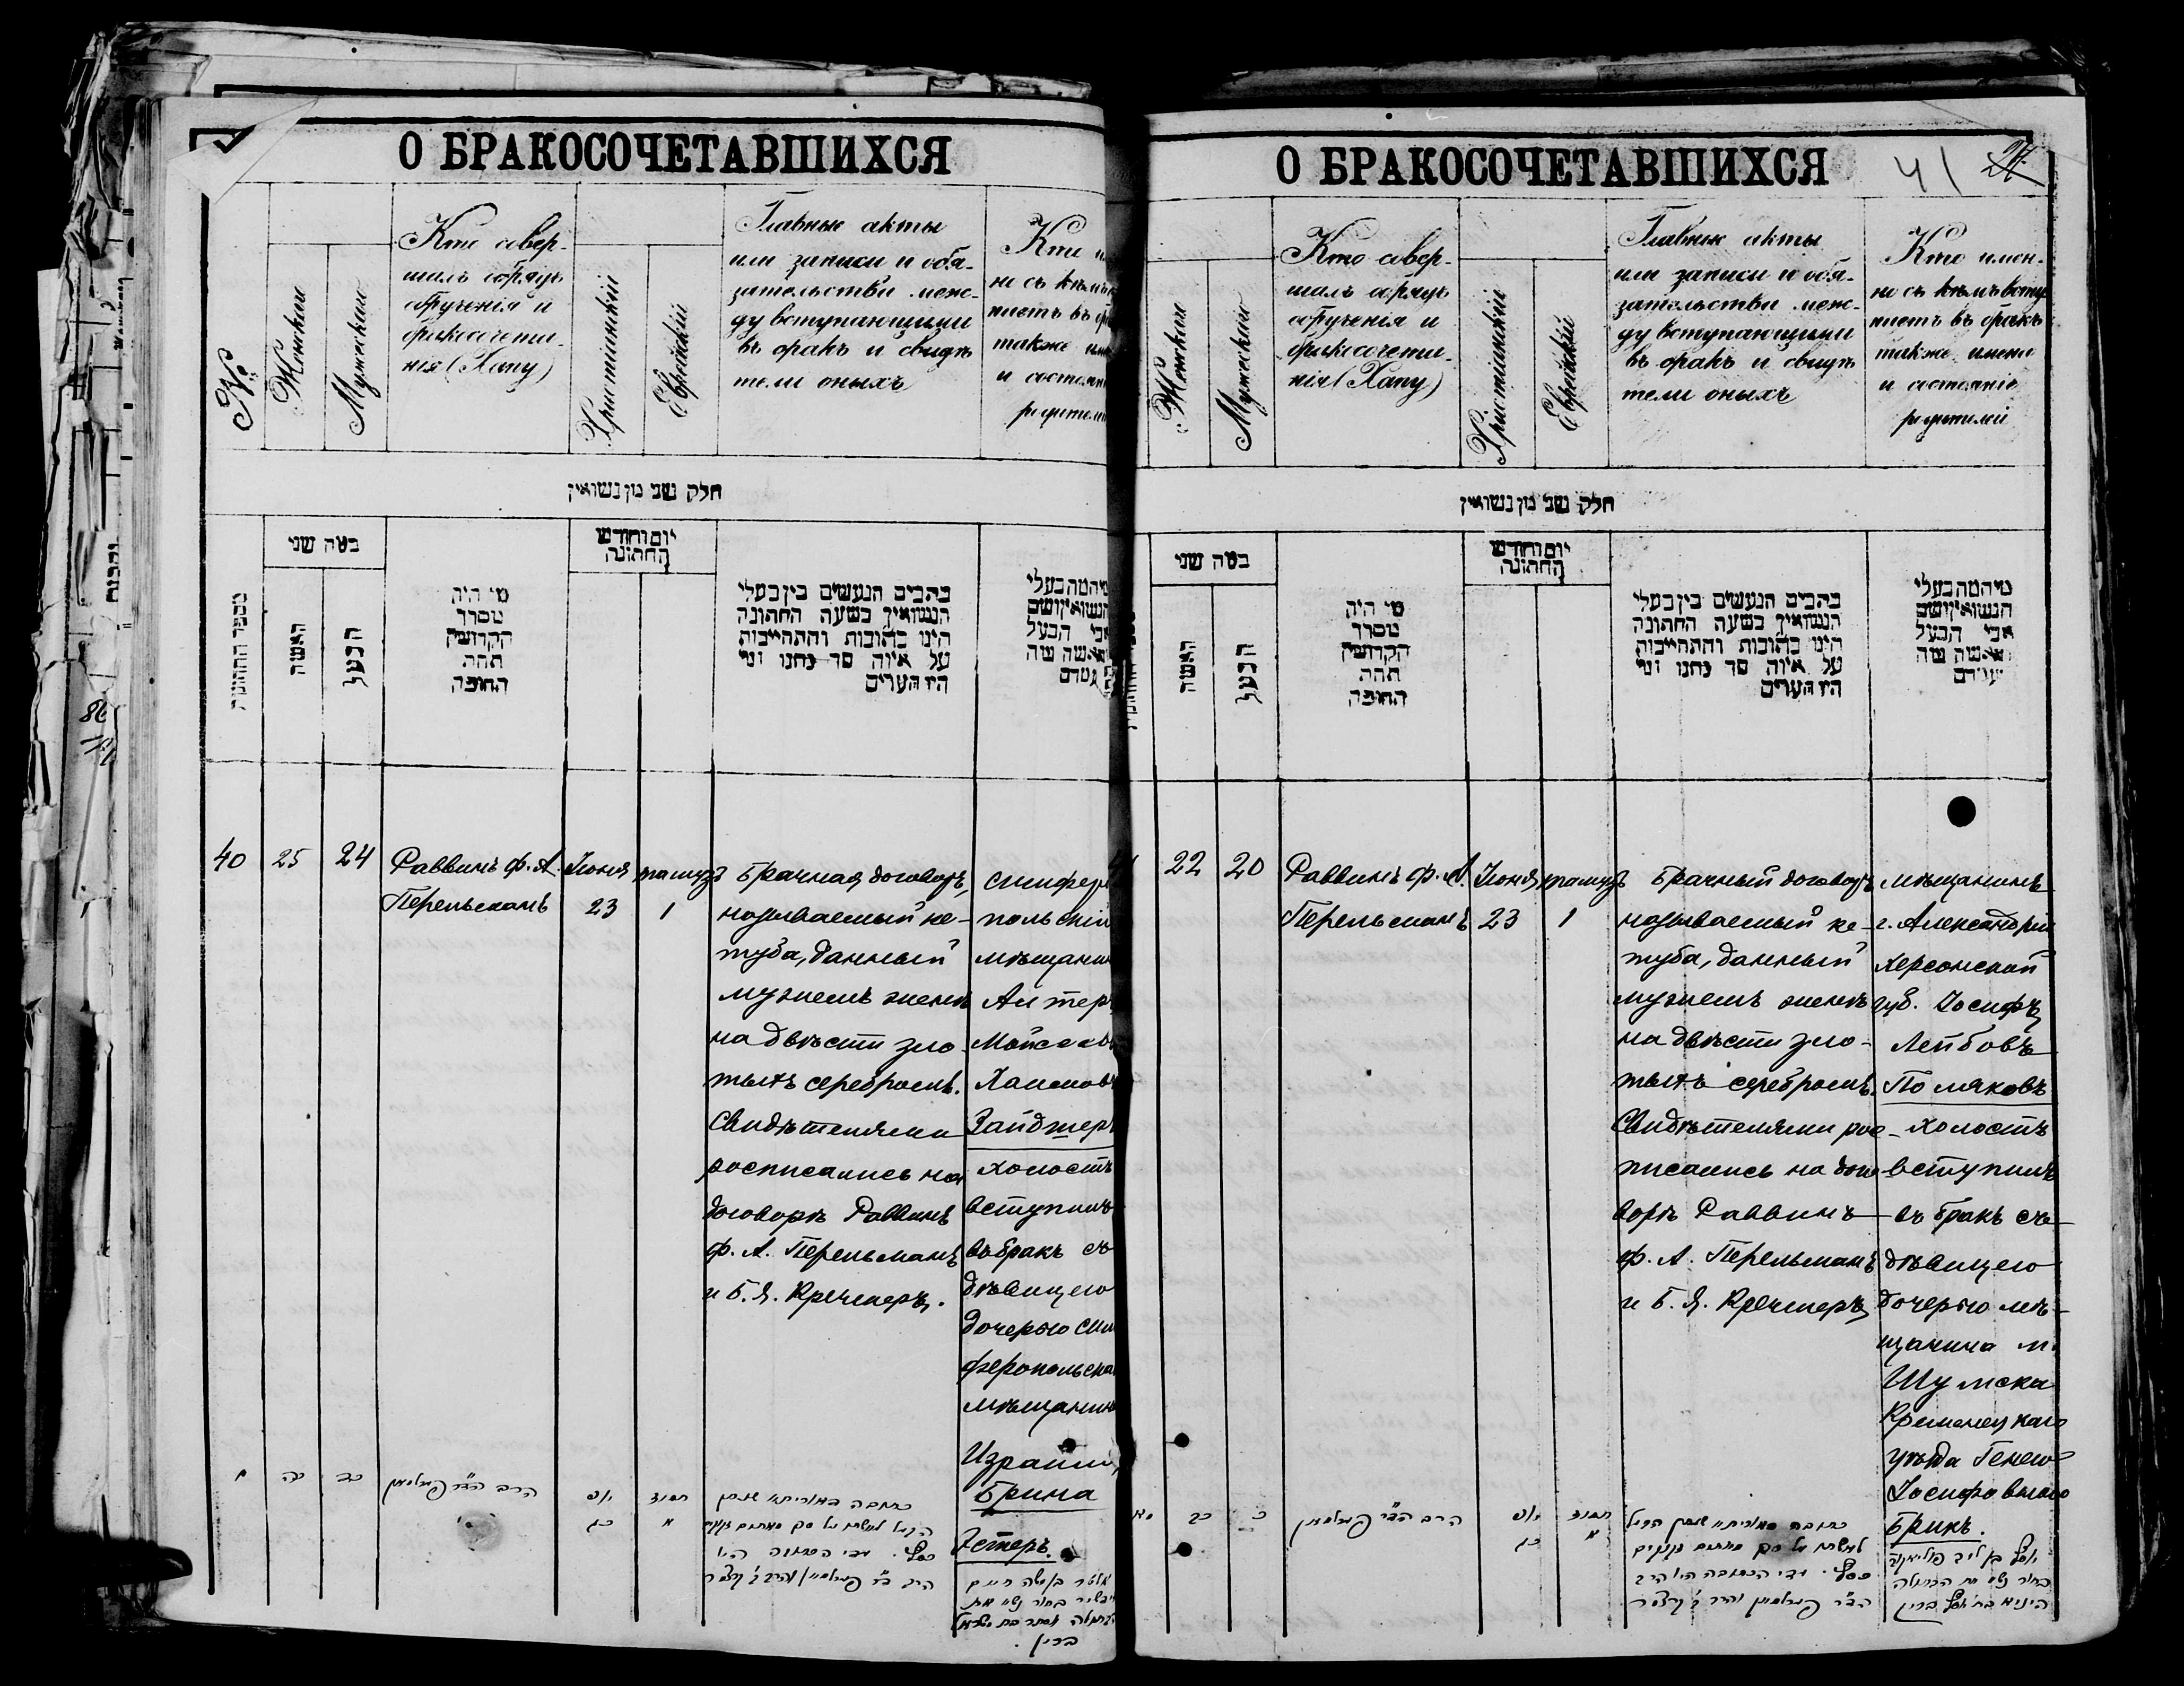 О БРАКОСОЧЕТАВШИХСЯ
№
Женскии
Мужескии
Кто совер-
шалъ обрядъ
обрученія и
бракосочета-
нія (Хапу)
Христіанскій
Еврейскій
Главные акты
или записи и обя-
зательства меж-
ду вступающими
въ бракъ и свидѣ
тели оныхъ
Кто
но съ кѣмъ
паетъ въ
также
и состояні
родители
חלק שני מן נשואין
מספר החתונות
כמה שני
האשה
הבעל
מי היה
מסדר
הקדושין
תחת
החופה
יום וחודש
החתונה
כתבים הנעשים בין בעלי
הנשואין בשעה החתונה
היינו כתובות והתחייבות
על איזה סך נתנו ומי
היו העדים
מי המה בעלי
הנשואין ושם
אבי הבעל
40
25
24
Раввинъ Ф. А.
Перельманъ
Іюня
23
тамузъ
1
Брачная договоръ,
называемый ке-
туба, данный
мужемъ женѣ
на двѣсти зло-
тыхъ серебромъ.
Свидѣтелями
росписались на
договорѣ Раввинъ
Ф. А. Перельманъ
и Б. Я. Кречмеръ.
симферо
польскій
мѣщанин
Алтеръ
Хаимовъ
Зайдшеръ
холостъ
вступилъ
въ бракъ съ
дѣвицею
дочерью сим
феропольска
мѣщанин
Израиля
Брина
Эстеръ.
מ
כה
כד
הרב הד״ר פערלמאן
יוני
כג
תמוז
א
О БРАКОСОЧЕТАВШИХСЯ
41
27
Женскии
Мужескии
Кто совер-
шалъ обрядъ
обрученія и
бракосочета-
нія (Хапу)
Христіанскій
Еврейскій
Главные акты
или записи и обя-
зательства меж-
ду вступающими
въ бракъ и свидѣ
тели оныхъ
Кто имен-
но съ кѣмъ всту
паетъ въ бракъ
также имена
и состояніе
родителей
חלק שני מן נשואין
כמה שני
האשה
הבעל
מי היה
מסדר
הקדושין
תחת
החופה
יום וחודש
החתונה
כתבים הנעשים בין בעלי
הנשואין בשעה החתונה
היינו כתובות והתחייבות
על איזה סך נתנו ומי
היו העדים
מי המה בעלי
הנשואין ושם
אבי הבעל
22
20
Раввинъ Ф. А.
Перельманъ
Іюня
23
тамузъ
1
Брачный договоръ
называемый ке-
туба, данный
мужемъ женѣ
на двѣсти зло-
тыхъ серебромъ.
Свидѣтелями рос-
писались на дого
ворѣ Раввинъ
Ф. А. Перельманъ
и Б. Я. Кречмеръ
мѣщанинъ
г. Александріи
Херсонской
губ. Іосифъ
Лейбовъ
Поляковъ
холостъ
вступилъ
въ бракъ съ
дѣвицею
дочерью мѣ-
щанина м.
Шумска
Кременецкаго
уѣзда Генею
Іосифовною
Брикъ.
מא
כב
כ
הרב הד״ר פערלמאן
יוני
כג
תמוז
א